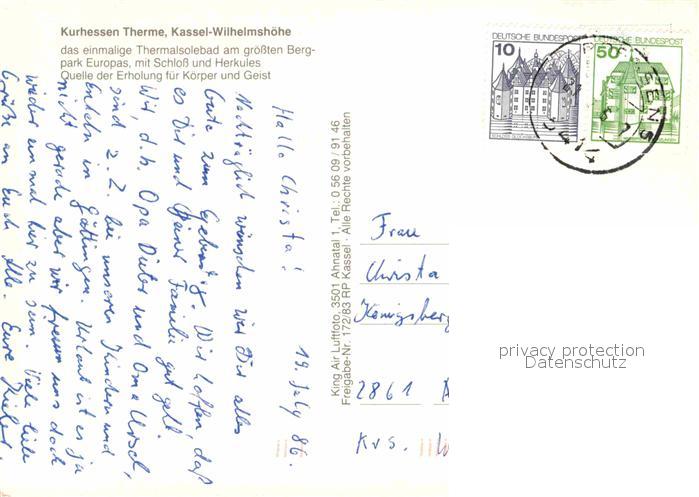 Kurhessen Therme, Kassel-Wilhelmshöhe
das einmalige Thermalsolebad am größten Berg-
park Europas, mit Schloß und Herkules
Quelle der Erholung für Körper und Geist
DEUTSCHE BUNDESPOST
10
DEUTSCHE BUNDESPOST
50
19. July 86.
Hallo Christa!
Nachträglich wünschen wir Dir alles
Gute zum Geburtstg. Wir hoffen, daß
es Dir und Deiner Familie gut geht.
Wir, d.h. Opa Dieter und Oma Ursel,
sind z. Z. bei unseren Kindern und
Enkeln in Göttingen. Urlaub ist es ja
nicht gerade aber wir freuen uns doch
wieder einmal hier zu sein. Viele liebe
Grüße an Euch Alle. Eure
King Air Luftfoto, 3501 Ahnatal 1, Tel.: 0 56 09 / 91 46
Freigabe-Nr. 172/83 RP Kassel · Alle Rechte vorbehalten
Frau
Christa
Königsberg
2861
Krs.
privacy protection
Datenschutz